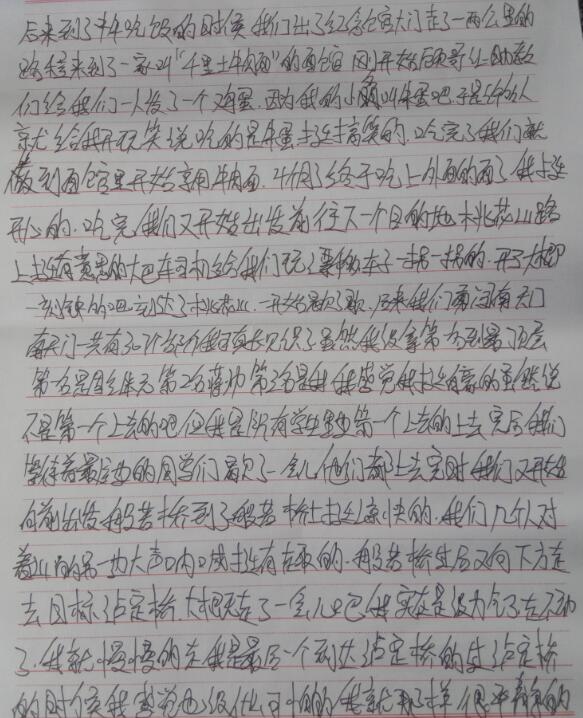 后来到了中午吃饭的时候我们出了纪念馆大门走了一两公里的
路程来到了一家叫"千里土牛肉面"的面馆 刚开始硕哥让助教
们给我们一人发了一个鸡蛋.因为我的小 叫朱蛋吧.于是给队
就给我开玩笑说吃的是朱蛋挺搞笑的.吃完了我们就
做到面馆里开始享用牛肉面.4个月了终于吃上外面的面了我挺
开心的.吃完我们又开始出发前往下一个目的地 桃花山路
上挺有意思的大巴车司机给我们玩了 车子一拐一拐的.开了大概
一刻钟的吧到达了桃花山.一开始歇了歇.后来我们 南天门
南天门一共有 个台阶我 见识了虽然我没拿第一名到最顶层
第一名是 第二名蒋帅 第三名是我我感觉我挺自豪的虽然说
不是第一个上去的吧但我是所有学生里边第一个上去的上去完后我们
等待着最后边的同学们歇了一会儿他们都上去完时我们又开始
向前出发 般若桥到了般若桥上挺凉快的.我们几个人对
着山的另一边大声呐喊挺有在取的.般若桥走后又向下方走
去目标泸定桥.大概走了一会儿吧我实在是没力气了走不动
了.我就慢慢的走我是最后一个到达泸定桥的过泸定桥
的时候我感觉也没什么可怕的我就 很平静的